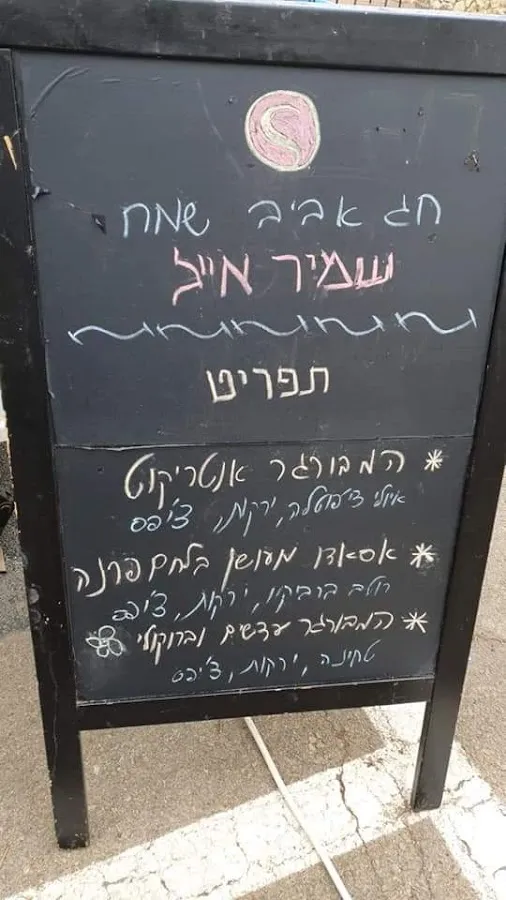 חג אביב שמח
שמיר אייל
תפריט
* המבורגר אנטריקוט
איולי צ'יפוטלה, ירקות, צ'יפס
* אסאדו מעושן בלחם פרנה
רוטב ברבקיו, ירקות, צ'יפס
* המבורגר עדשים וברוקולי
טחינה, ירקות, צ'יפס